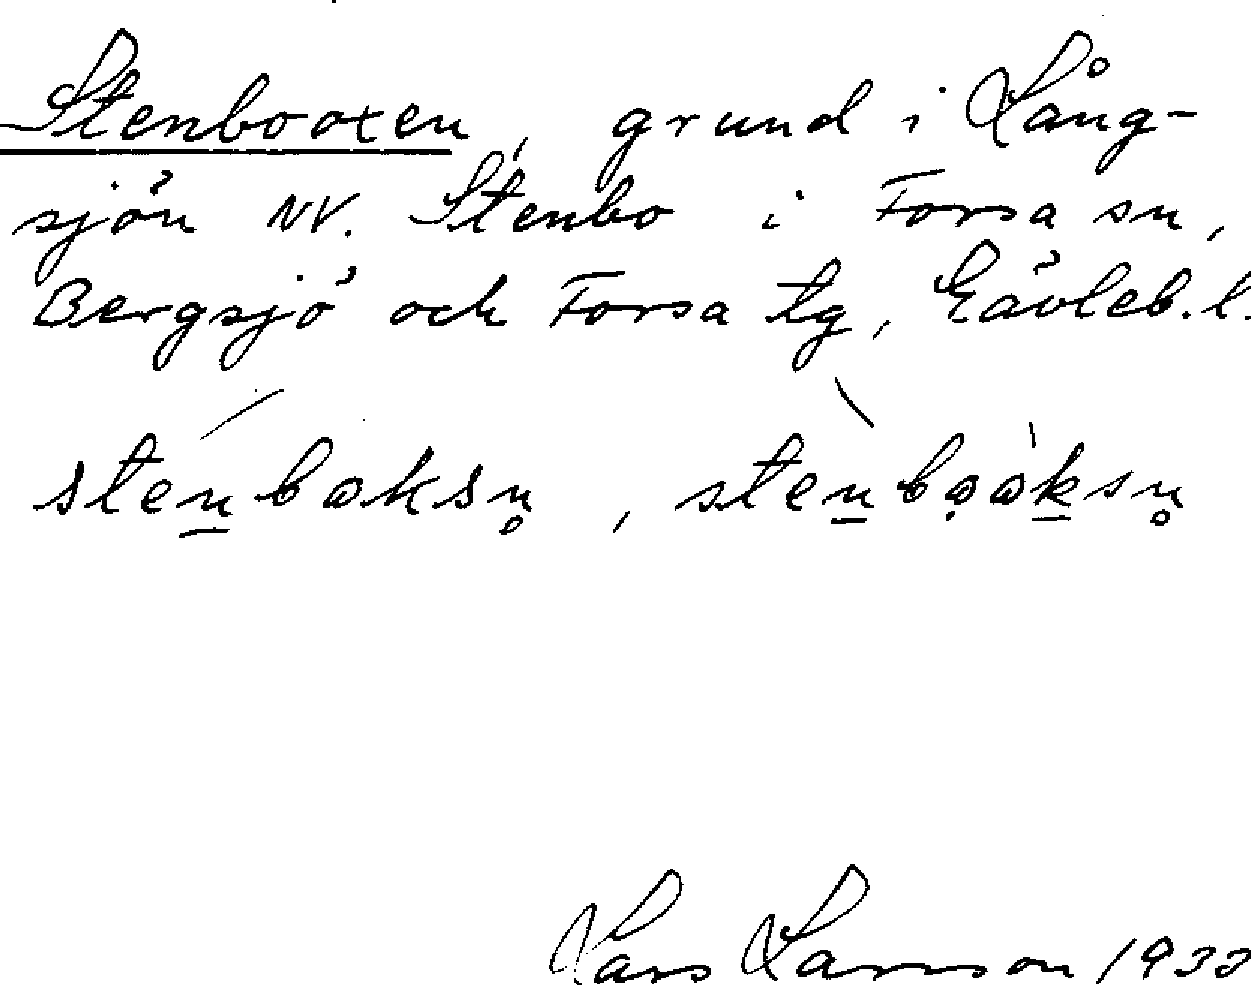 Stenbooxen, grund i Lång-
sjön NV. Stenbo i Forsa sn,
Bergsjö och Forsa tg, Gävleb. l.
stenboksn, stenbooksn
Lars Larsson 1933